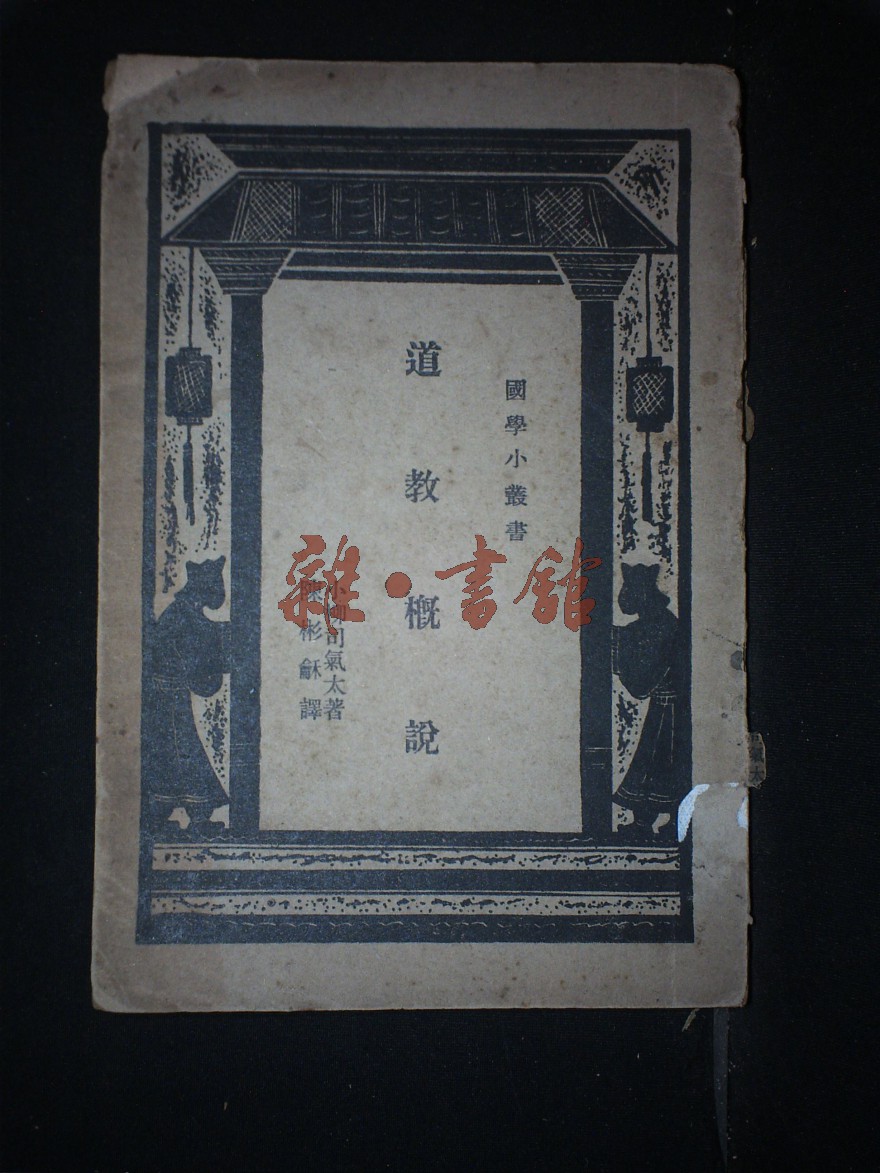 國學小叢書
道教概說
小柳司氣太著
陳彬龢譯
雜·書館